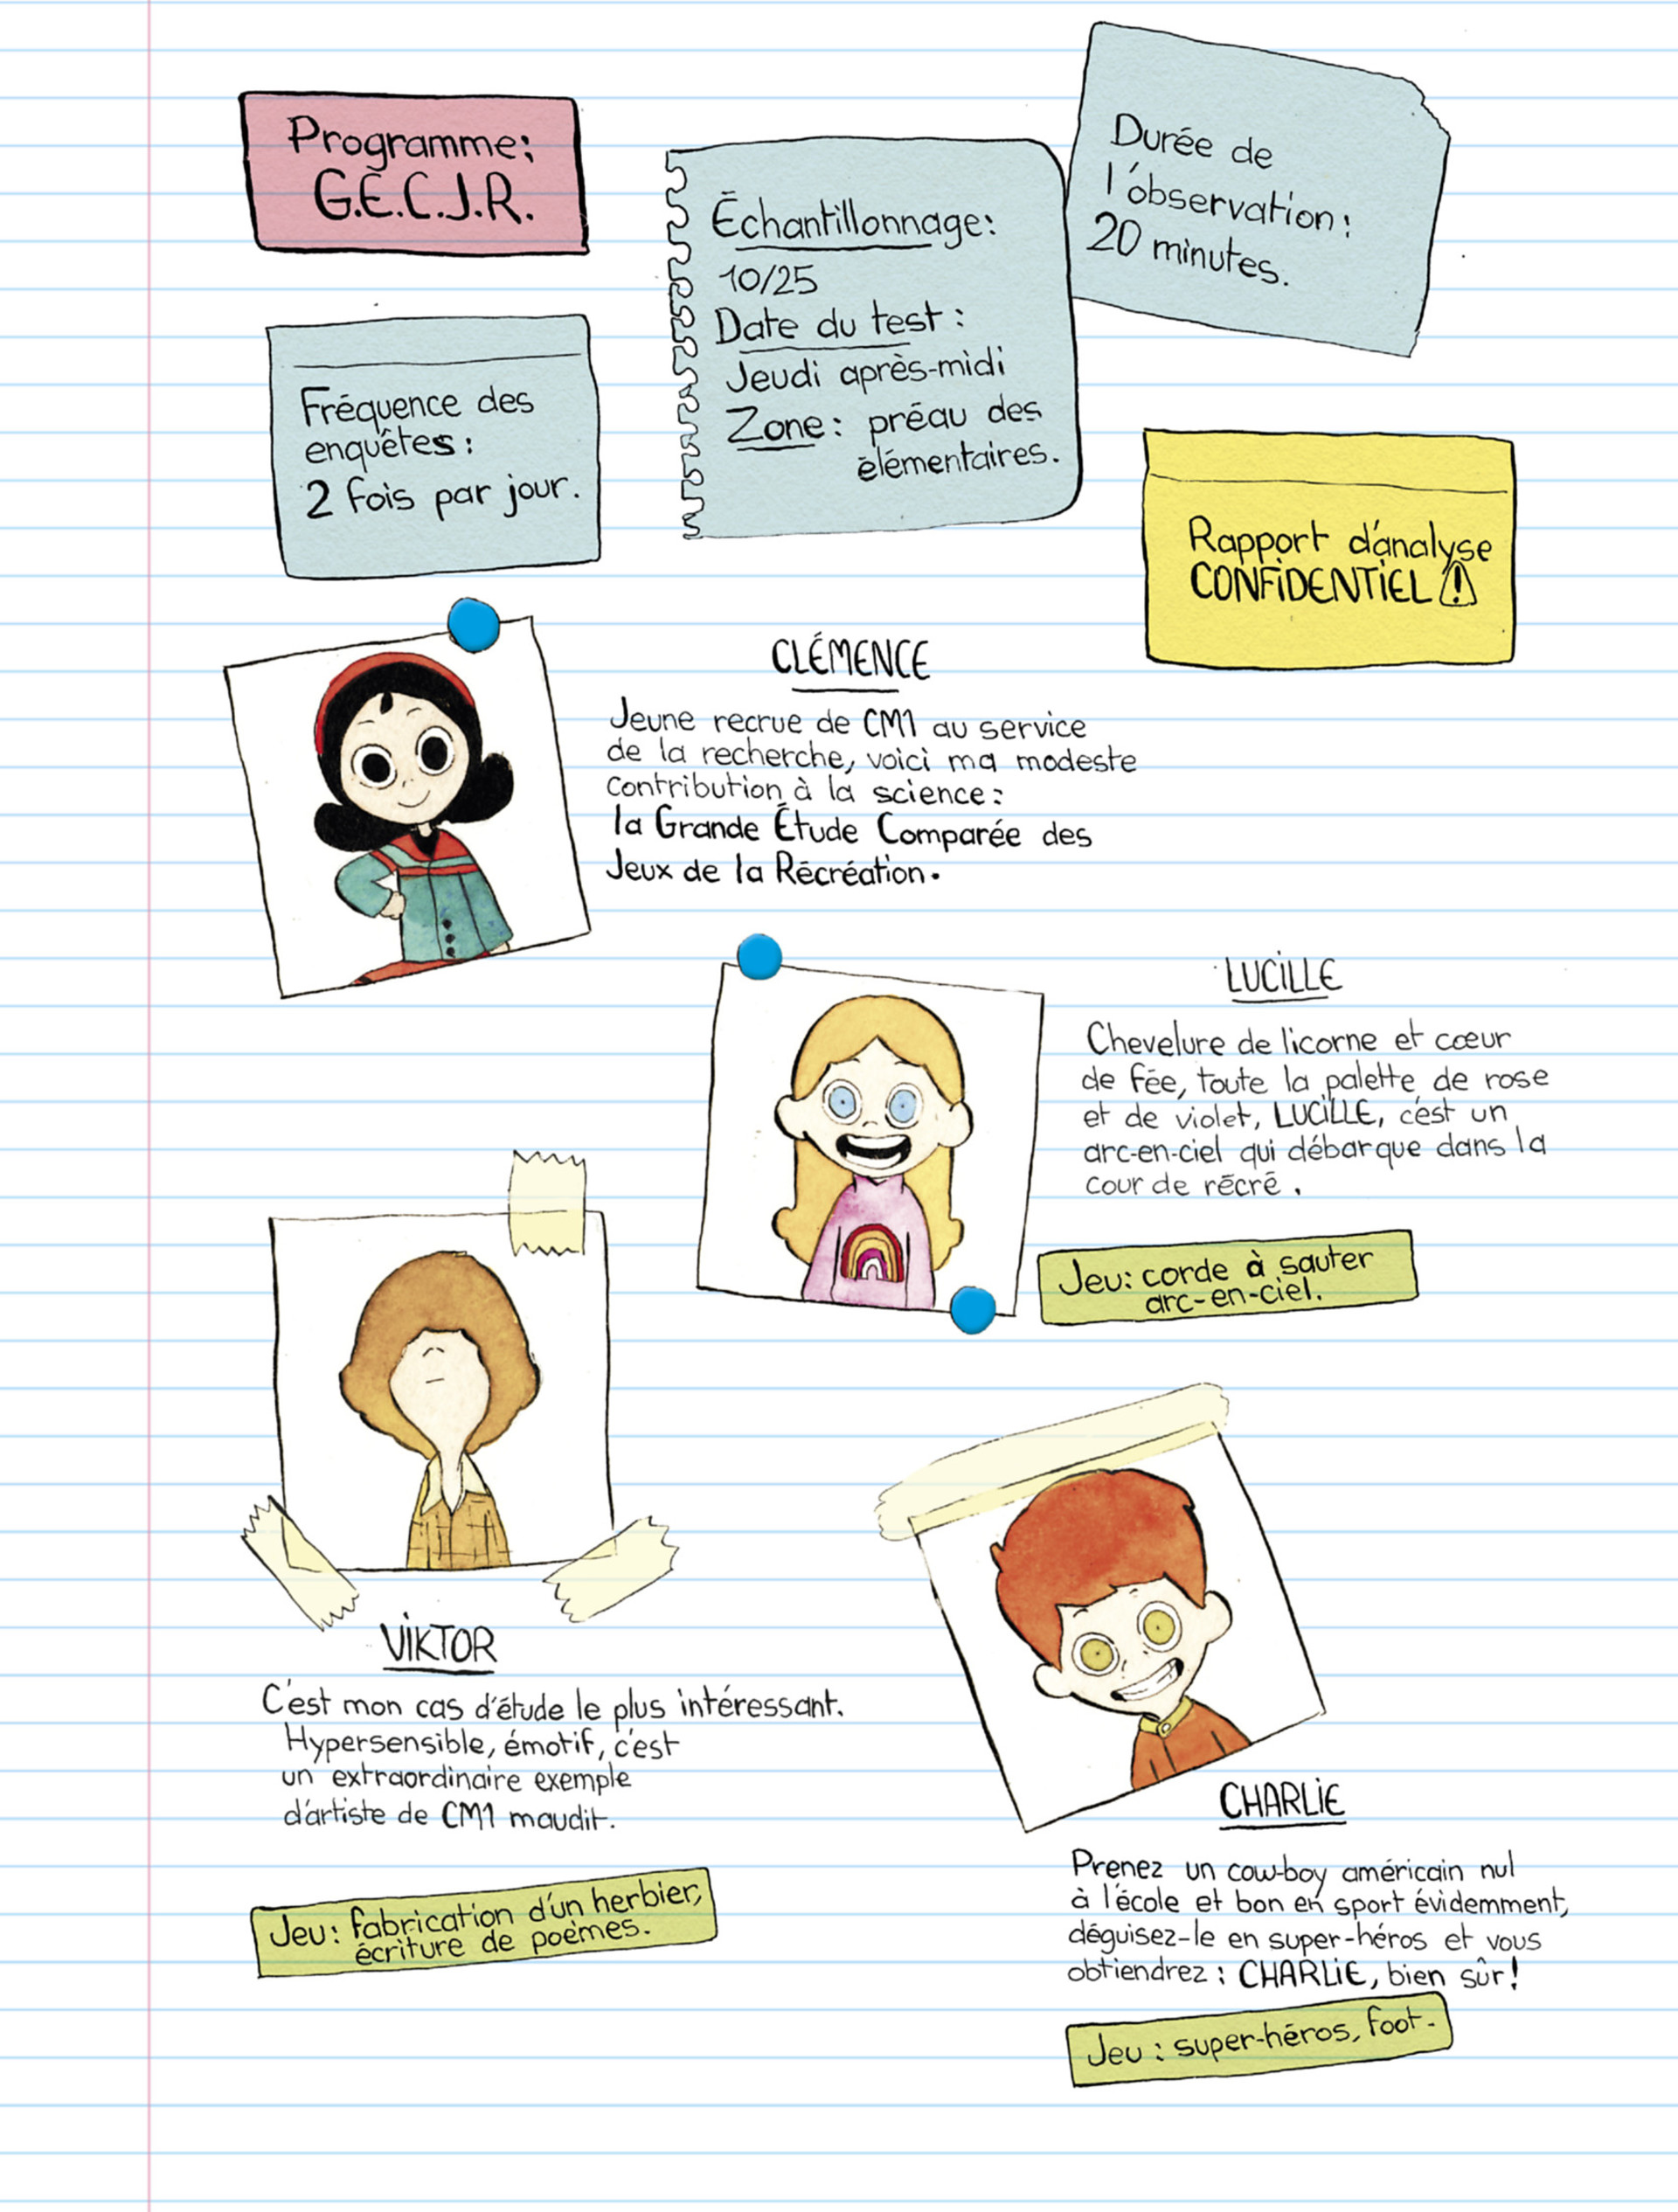 Programme:
G.É.C.J.R.
Échantillonnage:
10/25
Date du test :
Jeudi après-midi
Zone : préau des
élémentaires.
Durée de
l'observation :
20 minutes.
Fréquence des
enquêtes :
2 fois par jour.
Rapport d'analyse
CONFIDENTIEL
CLÉMENCE
Jeune recrue de CM1 au service
de la recherche, voici ma modeste
contribution à la science :
la Grande Étude Comparée des
Jeux de la Récréation.
LUCILLE
Chevelure de licorne et cœur
de fée, toute la palette de rose
et de violet, LUCILLE, c'est un
arc-en-ciel qui débarque dans la
cour de récré.
Jeu: corde à sauter
arc-en-ciel.
VIKTOR
C'est mon cas d'étude le plus intéressant.
Hypersensible, émotif, c'est
un extraordinaire exemple
d'artiste de CM1 maudit.
Jeu: fabrication d'un herbier,
écriture de poèmes.
CHARLIE
Prenez un cow-boy américain nul
à l'école et bon en sport évidemment,
déguisez-le en super-héros et vous
obtiendrez : CHARLIE, bien sûr !
Jeu : super-héros, foot.